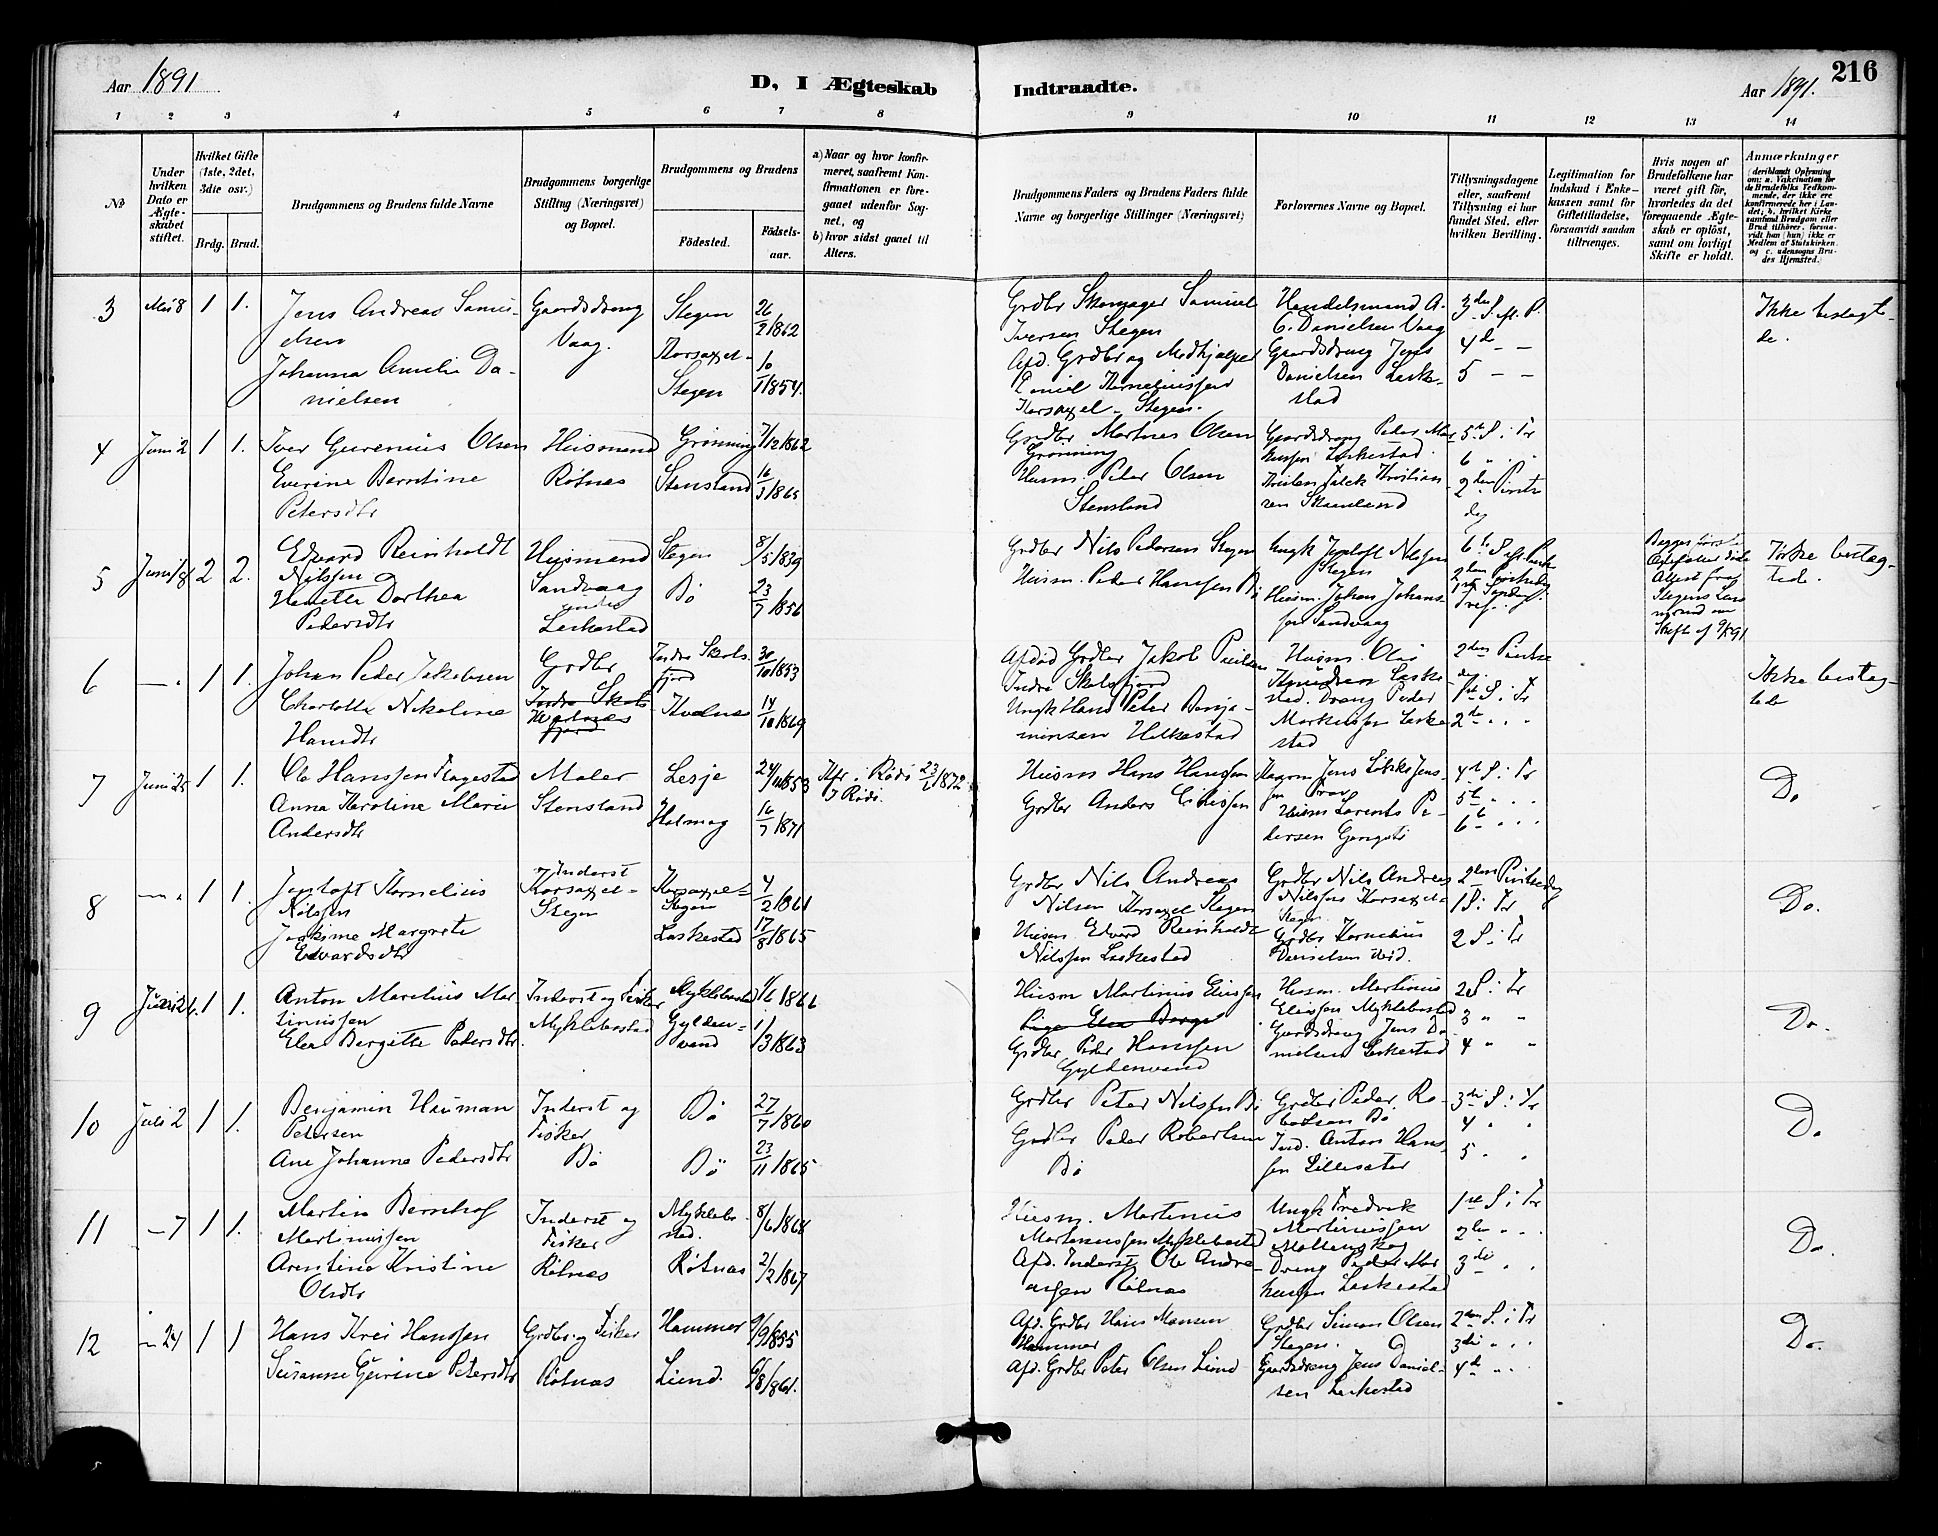 Aar 1891
D, I Ægteskab
Indtraadte.
Aar 1891.
216
1 2 3 4 5 6 7 8 9 10 11 12 13 14
No
Under hvilken Dato er Ægteskabet stiftet.
Hvilket Gifte (1ste, 2det, 3die osv.)
Brdg. Brud.
Brudgommens og Brudens fulde Navne
Brudgommens borgerlige Stilling (Næringsvei) og Bopæl.
Brudgommens og Brudens
Fødested.
Fødselsaar.
a) Naar og hvor konfirmeret, saafremt Konfirmationen er foregaaet udenfor Sognet, og
b) hvor sidst gaaet til Alters.
Brudgommens Faders og Brudens Faders fulde Navne og borgerlige Stillinger (Næringsvei)
Forlovernes Navne og Bopæl.
Tillysningsdagene eller, saafremt Tillysning ei har fundet Sted, efter hvilken Bevilling.
Legitimation for Indskud i Enkekassen samt for Giftetilladelse, forsaavidt saadan tiltrænges.
Hvis nogen af Brudefolkene har været gift før, hvorledes da det foregaaende Ægteskab er opløst, samt om lovligt Skifte er holdt.
Anmærkninger
3 Mai 8 1 1.
Jens Andreas Samuelsen
Johanna Amelie Danielsen
Gaardsdreng
Vaag.
Stegen 26/2 1862
Korsaxel-Stegen 10/1 1854.
Grdbr Skomager Samuel
Iversen Stegen
Afd. Grdbr og Medhjælper
Daniel Korneliussen
Korsaxel-Stegen.
Handelsmand A.
C. Danielsen Vaag
Gaardsdreng Jens
Danielsen Laskestad
3die S. eft. P.
4de — —
5 — —
Ikke beslegtede.
4 Juni 2 1 1.
Iver Gurenius Olsen
Everine Berntine
Petersdtr
Husmand
Røtnes
Grønning 7/12 1862
Stensland 16/3 1865
Grdbr Martnes Olsen
Grønning
Husm. Peder Olsen
Stensland
Gaardsdreng Peder Markussen Laskestad.
Skaanland
5te S. i Tr
6 " "
2den Pintsedag
5 Juni 18 2 2.
Edvard Reinholdt
Nilssen
Hanette Dorthea
Pedersdtr
Husmand
Sandvaag
under
Laskestad
Stegen 8/5 1839
Bø 23/7 1856
Grdbr Nils Pedersen Stegen
Husm. Peder Hanssen Bø
Ungk Jentoft Nilssen
Stegen
Husm. Johan Johanssen Sandvaag
Ikke beslagtede.
6 — " 1 1.
Johan Peder Jakobsen
Charlotte Nikoline
Hansdtr
Grdbr
Indre Skotsfjord
Hvalnes
Indre Skotsfjord 30/10 1853
Hvalnes 14/10 1869
Afdød Grdbr Jakob
Indre Skotsfjord
Ungk Hans Peter Benjaminsen Helkestad
Husm. Ole
Knudsen Laskestad. Dreng Peder
Markussen Laskestad
2den Pintsedag.
1ste S. i Tr
2de " "
Ikke beslagtede
7 Juni 25 1 1.
Ole Hanssen Hagestad
Anna Karoline Marie
Andersdtr
Maler
Stensland
Lesje 24/11 1853
Holmag 16/7 1871
Kfr i Rødø 23/6 1872
Rødø.
Husm Hans Hanssen
Grdbr Anders Eriksen
Husm Lorents Pedersen
4de S. i Tr
5te " "
6te " "
Do
8 — " 1 1.
Jentoft Kornelius
Nilssen
Joakime Margrete
Edvardsdtr
Inderst
Korsaxel-Stegen
Korsaxel-Stegen 4/2 1861
Laskestad 17/8 1865
Grdbr Nils Andreas
Nilsen Korsaxel Stegen
Husm. Edvard Reinholdt
Nilssen Laskestad
Grdbr Nils Andreas
Nilssen Korsaxel-Stegen
Grdbr Kornelius
Danielsen ibid.
2den Pintsedag
1 S. i Tr
2 S. i Tr
Do.
9 Juni 26. 1 1.
Anton Marelius Martinussen
Elen Bergitte Pedersdtr.
Inderst og Fisker
Myklebostad
Myklebostad 1/6 1866
Gyldenvand 1/3 1863
Husm Martinus Eliassen
Pige Elen Berge
Grdbr Peder Hanssen
Gyldenvand
Husm. Martinus
Eliassen Myklebostad
Gaardsdreng Jens Danielsen Laskestad
2 S. i Tr
3 " "
4 " "
Do.
10 Juli 2 1 1.
Benjamin Hauman
Petersen
Ane Johanna Pedersdtr
Inderst og
Fisker
Bø
Bø 27/7 1860
Bø 23/11 1865
Grdbr Peter Nilssen Bø
Grdbr Peder Robertsen
Bø
Grdbr Peder Robertsen Bø
Ind. Anton Hanssen Lillesæter
3die S. i Tr
4 " "
5 " "
Do
11 — 7 1 1.
Martin Bernhof
Martinussen
Arentine Kristine
Olsdtr
Inderst og
Fisker
Røtnes
Myklebostad. 8/6 1868
Røtnæs 2/2 1867
Husm. Martinus
Martinussen Myklebostad
Afd. Inderst Ole Andreassen Røtnæs
Ungk Fredrek
Martinussen
Dreng Peder Markussen Laskestad
1ste S. i Tr
2den " "
3die " "
Do.
12 — 24 1 1
Hans Krei Hanssen
Susanne Gurine Petersdtr
Grdbr og Fisker
Røtnæs
Hammer 9/9 1855
Lund. 6/8 1861.
Afd. Grdbr Hans Hansen
Hammer
Afd. Grdbr Peter Olsen Lund
Grdbr Simon Olsen
Stegen.
Gaardsdreng Jens Danielsen Laskestad
2den S. i Tr
3die " "
4de " "
Do.